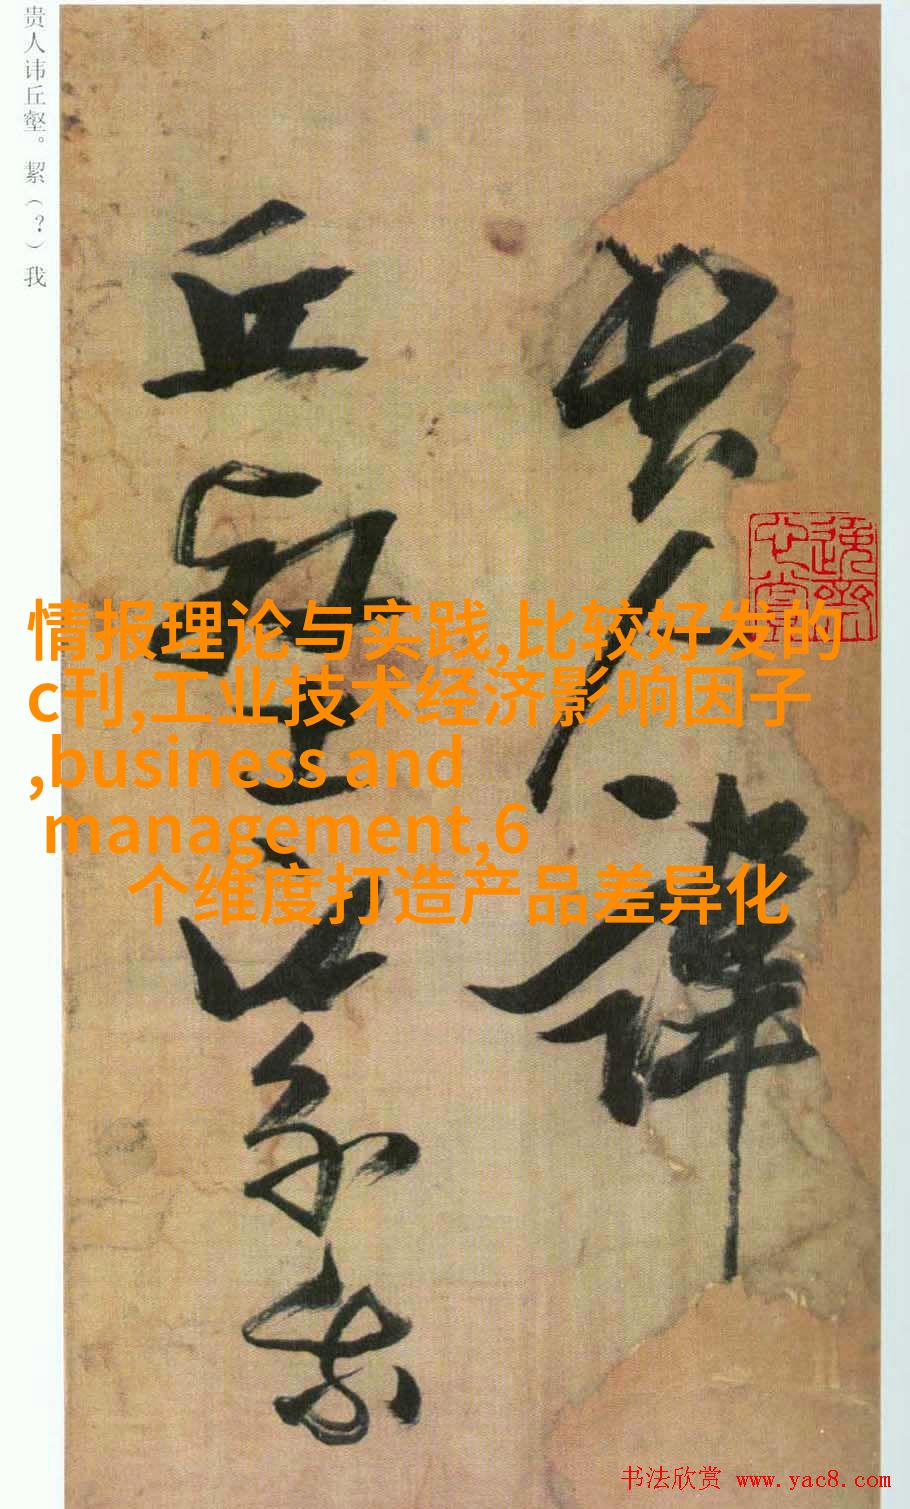 贵人讳丘壑。絜（？）我
贵人讳
丘壑之絜我
情报理论与实践,比较好发的
c刊,工业技术经济影响因子
,business and
management,6
个维度打造产品差异化
书法欣赏 www.yac8.com